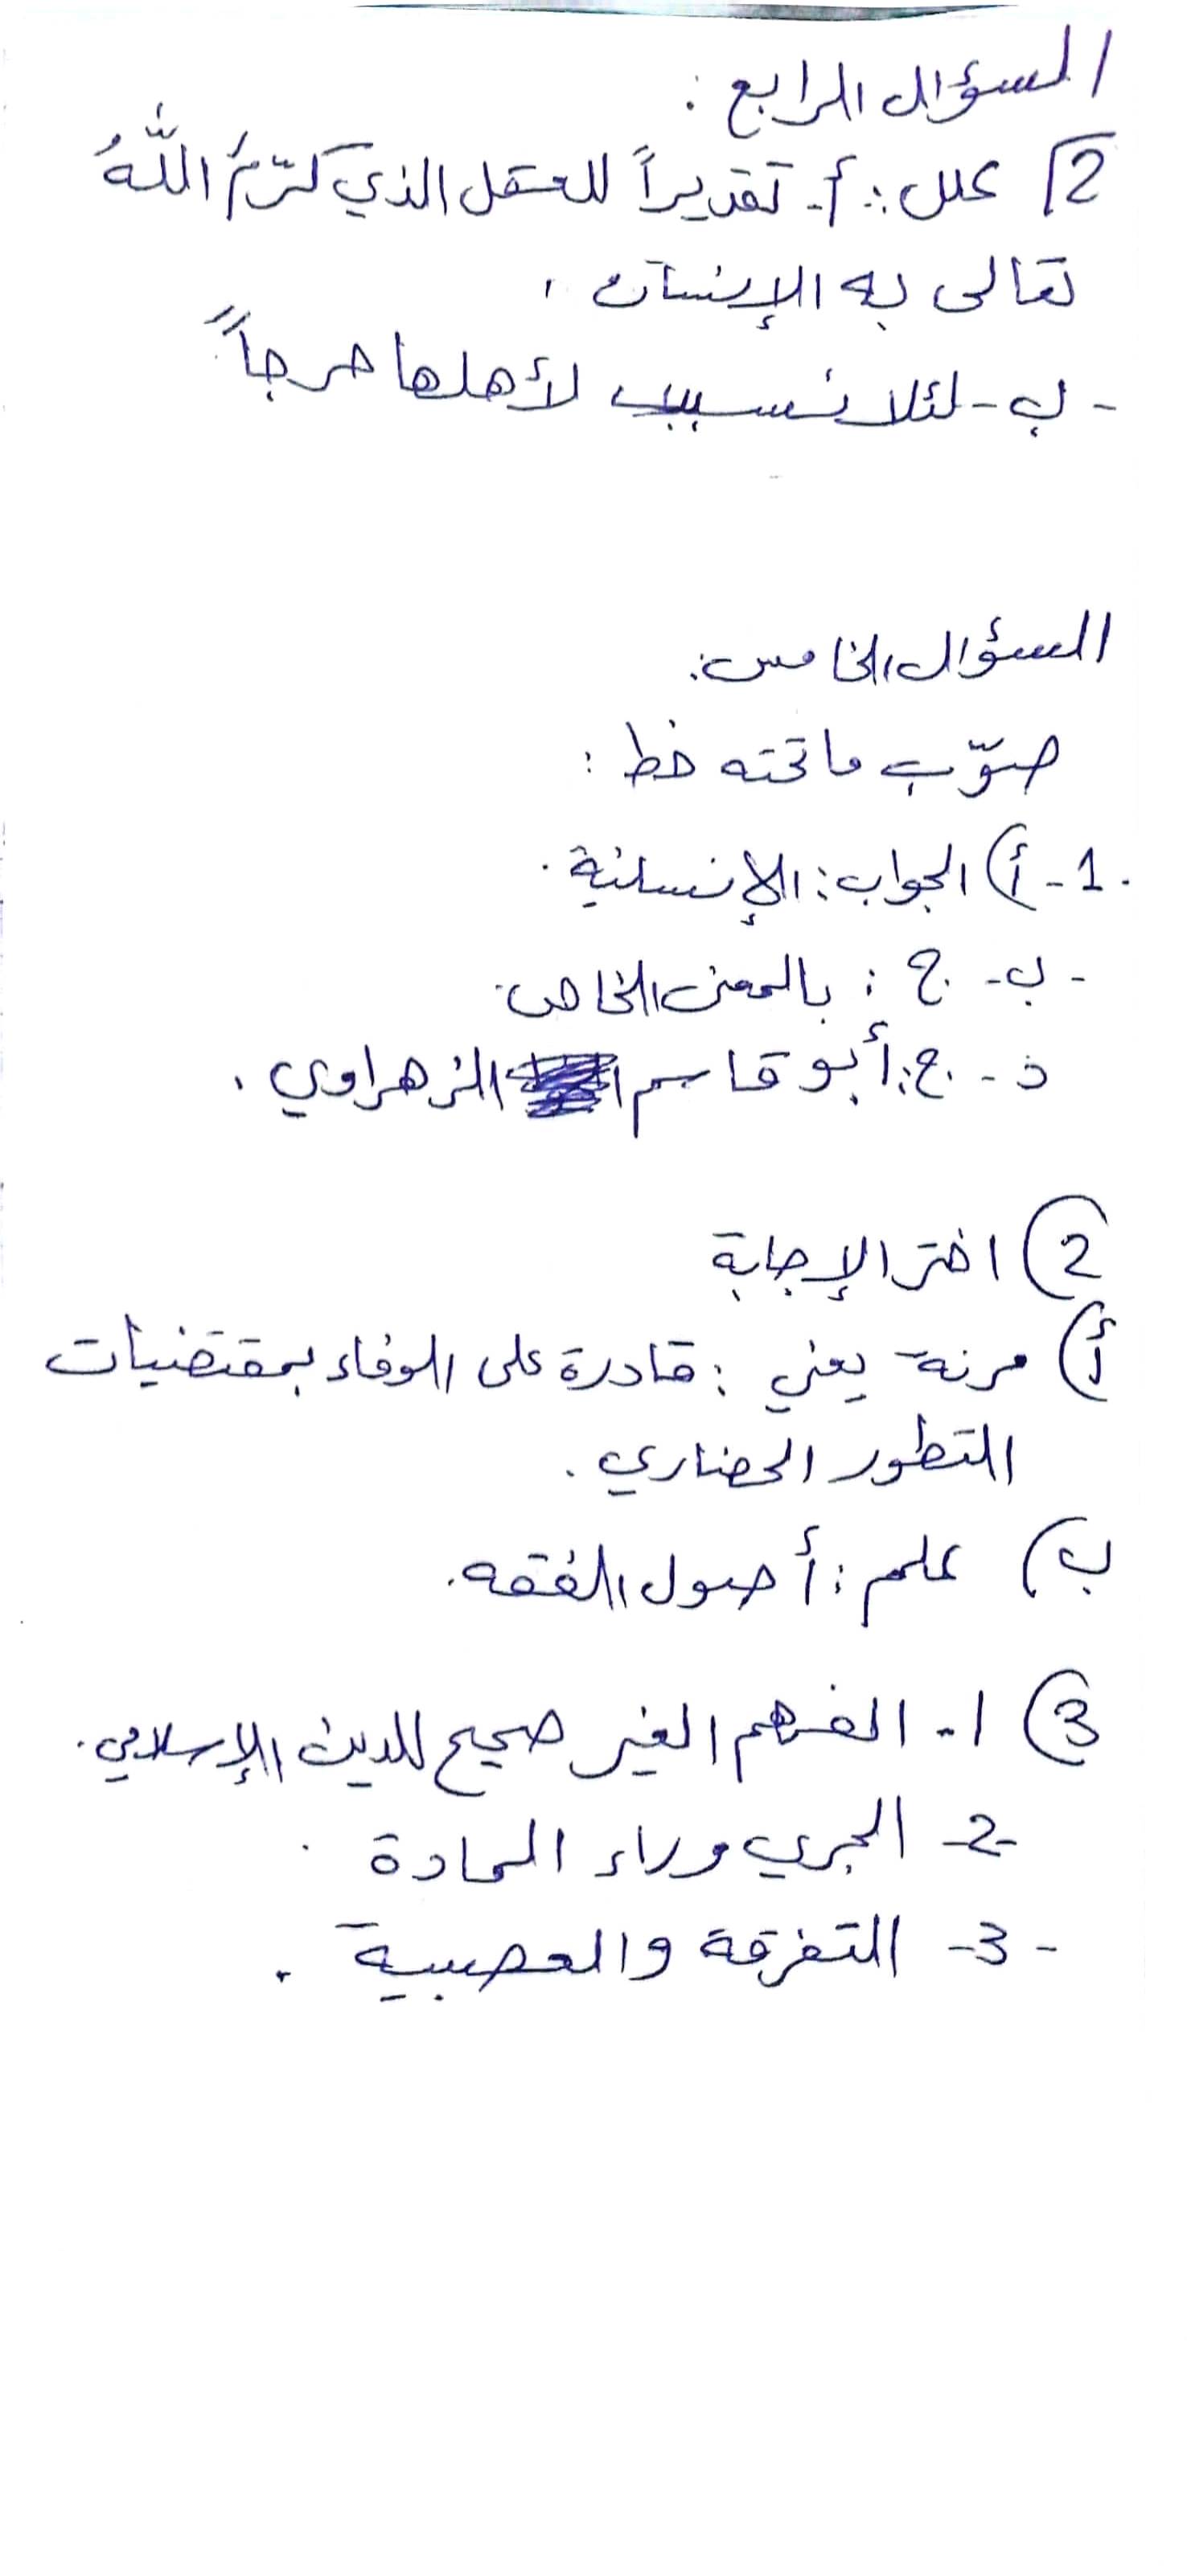 السؤال الرابع :
2) علل : أ- تقديراً للعقل الذي كرّمَ اللهُ
تعالى به الإنسان .
- ب - لئلا نسبب لأهلها حرجاً
السؤال الخامس :
صوّب ما تحته خط :
1 - أ) الجواب : الإنسانية .
- ب - ج : بالمعنى الخاص .
د - ج : أبو قاسم الزهراوي .
2) اختر الإجابة
أ) مرنة يعني : قادرة على الوفاء بمقتضيات
التطور الحضاري .
ب) علم : أصول الفقه .
3) 1- الفهم الغير صحيح للدين الإسلامي .
-2- الجري وراء المادة .
-3- التفرقة والعصبية .